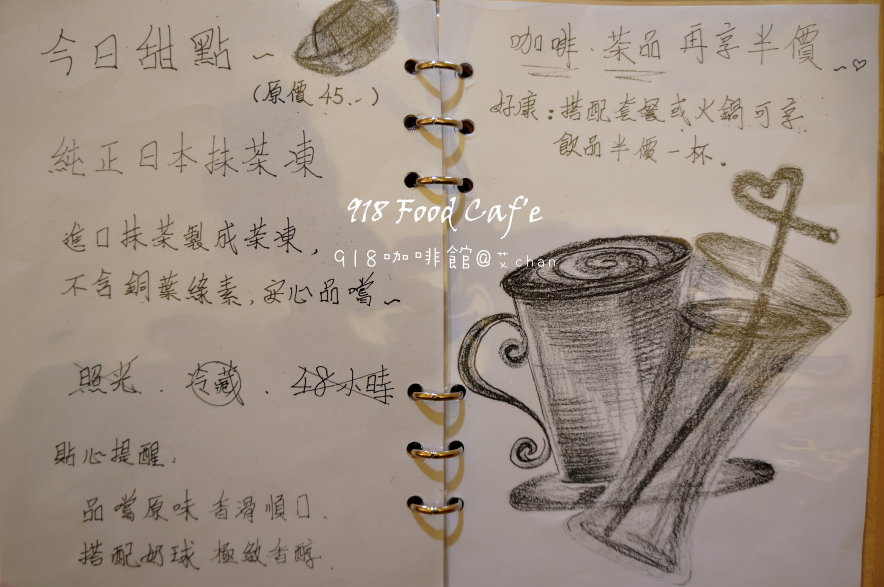 今日甜點~
(原價45.-)
純正日本抹茶凍
進口抹茶製成茶凍,
不含銅葉綠素,安心品嚐~
照光.冷藏.48小時
貼心提醒.
品嚐原味 香滑順口.
搭配奶球 極緻香醇.
咖啡.茶品 再享半價~♡
好康:搭配套餐或火鍋可享
飲品半價一杯。
918 Food Caf'e
918咖啡館@艾chan